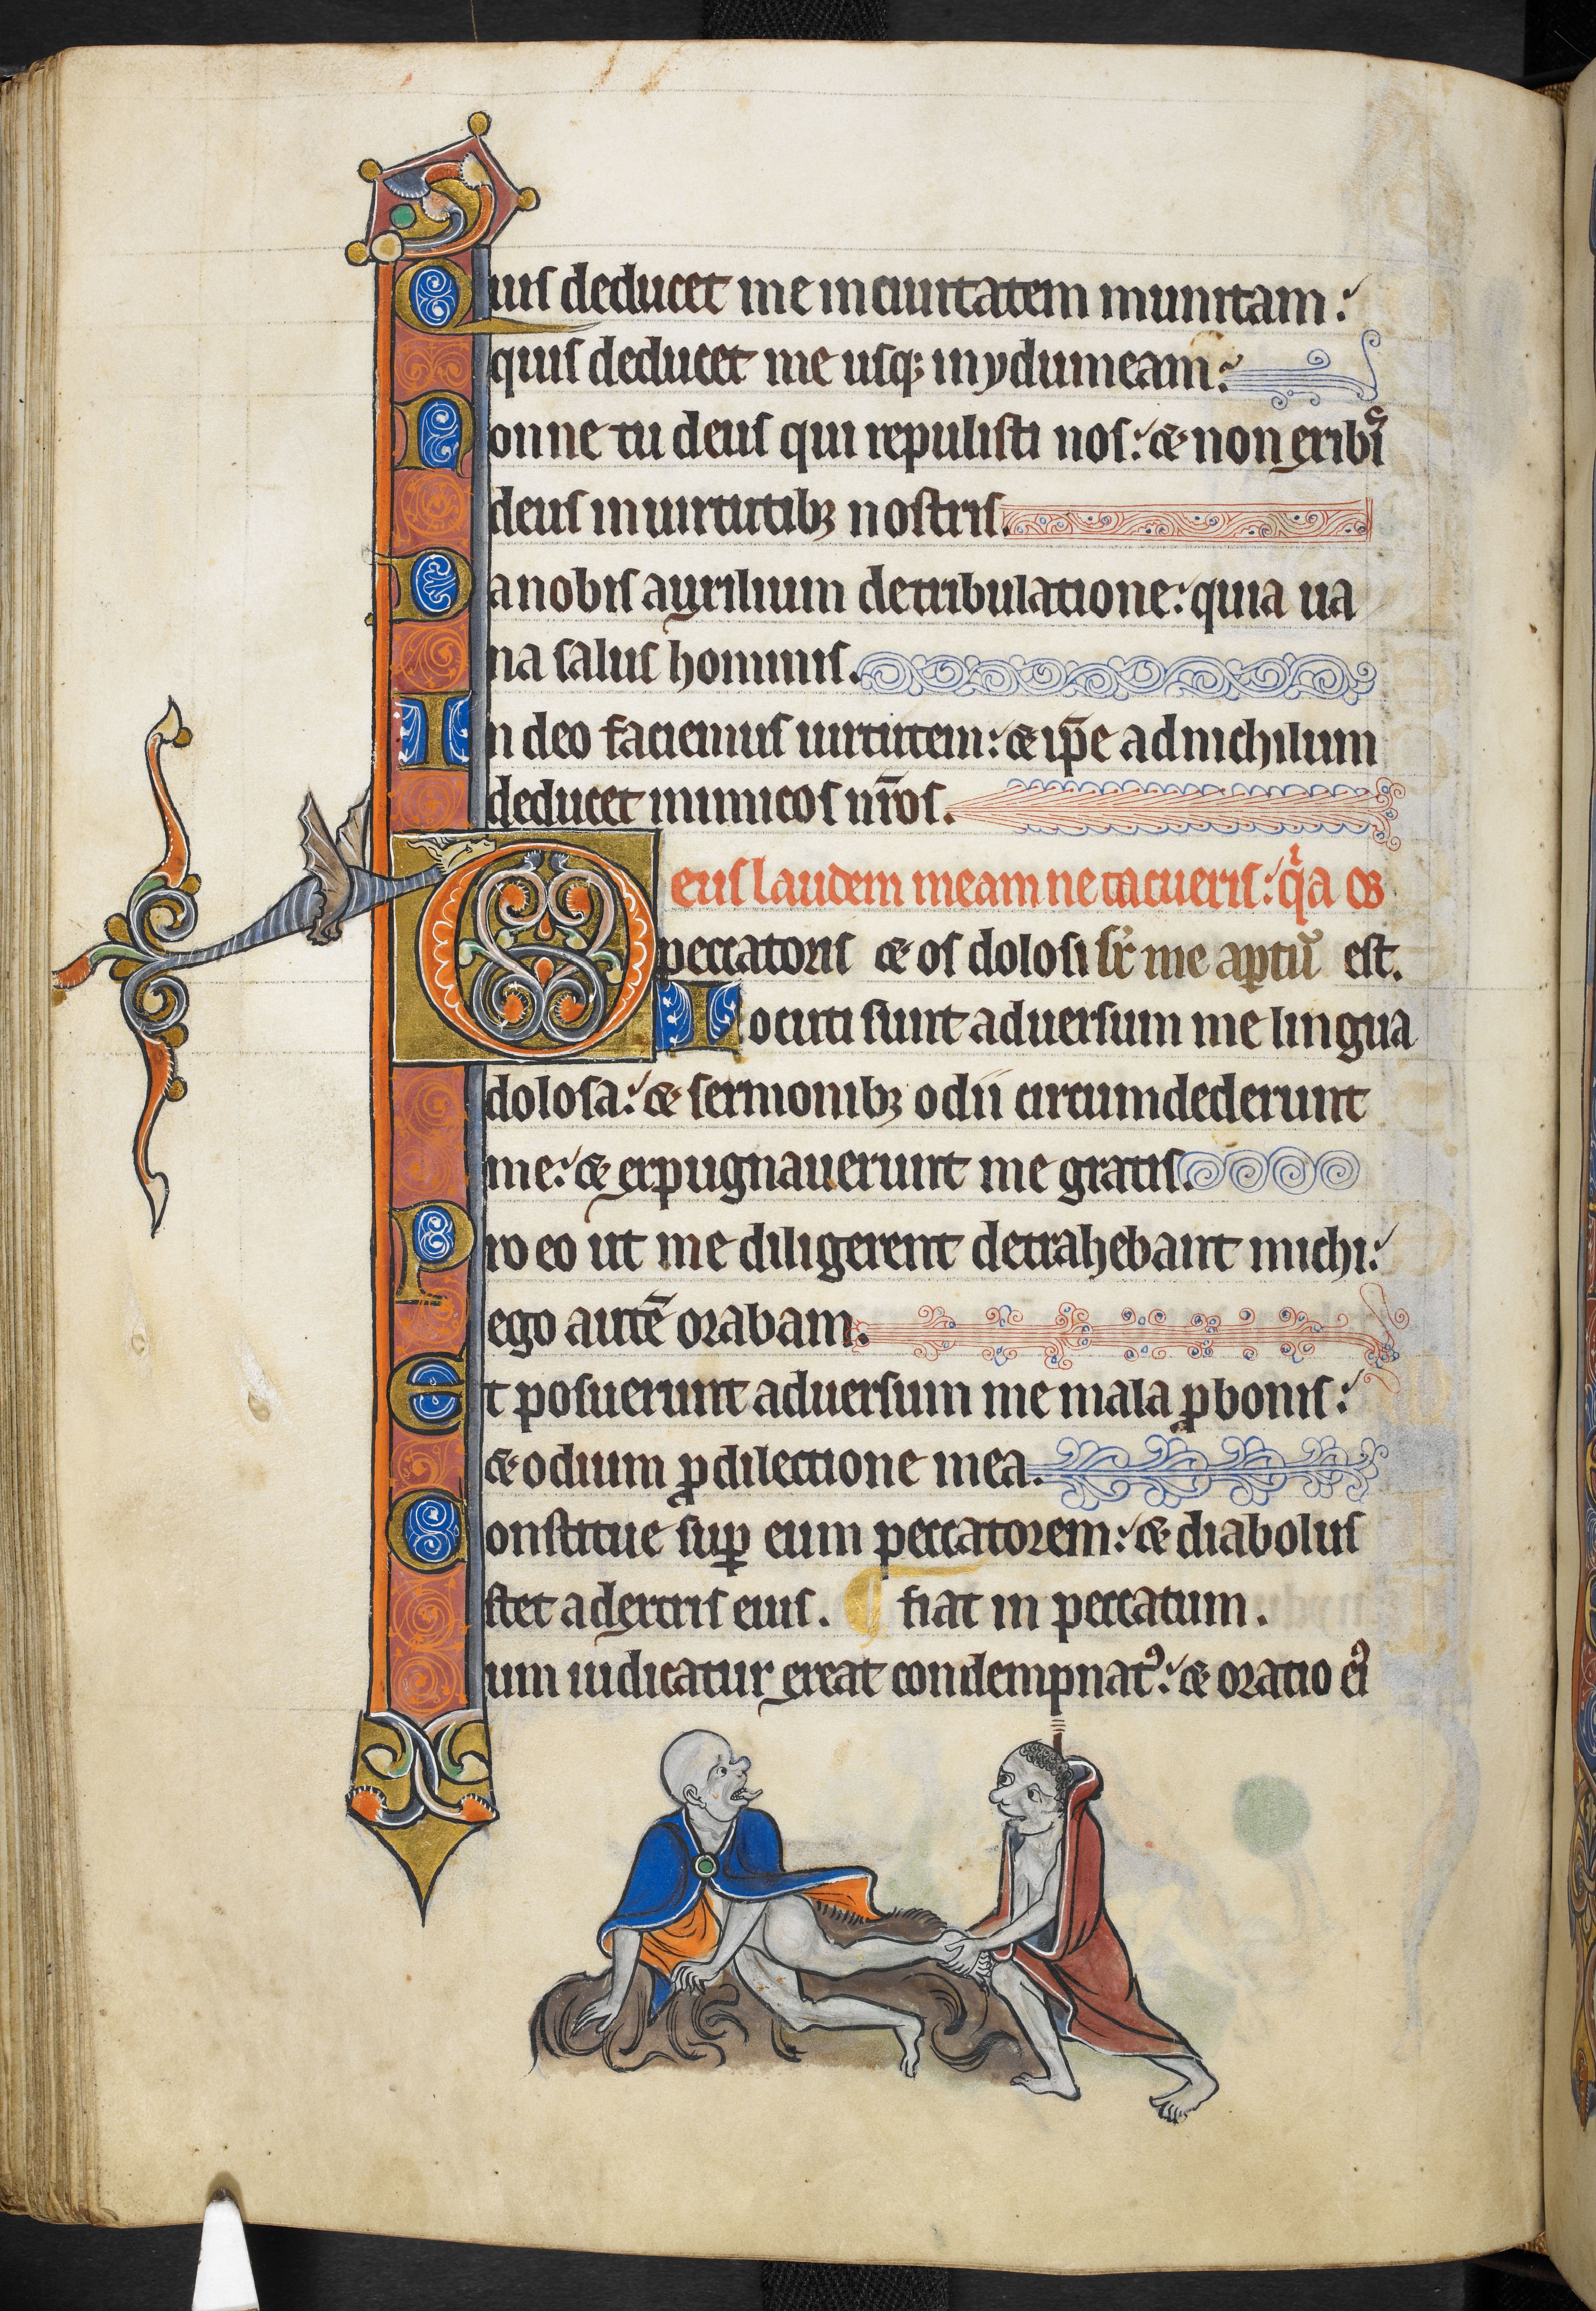 Quis deducet me in ciuitatem munitam:
quis deducet me usq; in ydumeam:
Nonne tu deus qui repulisti nos: & non exibis
deus in uirtutib; nostris.
Da nobis auxilium de tribulatione: quia ua
na salus hominis.
In deo faciemus uirtutem: & ip̄e ad nichilum
deducet inimicos nr̄os.
Deus laudem meam ne tacueris: qͥa os
peccatoris & os dolosi sr̄ me aꝑtū est.
Locuti sunt aduersum me lingua
dolosa: & sermonib; odii circumdederunt
me: & expugnauerunt me gratis.
Pro eo ut me diligerent detrahebant michi:
ego autē orabam.
Et posuerunt aduersum me mala ꝓ bonis:
& odium ꝓ dilectione mea.
Constitue suꝑ eum peccatorem: & diabolus
stet a dextris eius. ¶ fiat in peccatum.
um iudicatur exeat condempnatꝰ: & oratio eiꝰ